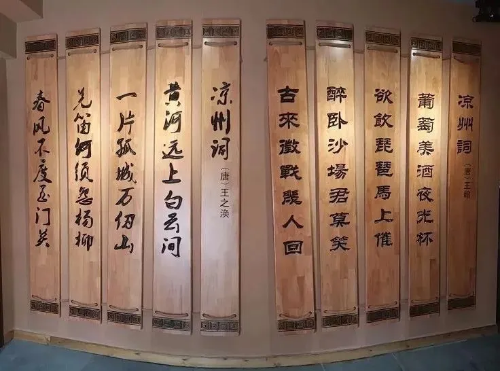 凉州词 [唐]王翰
葡萄美酒夜光杯
欲飲琵琶馬上催
醉卧沙場君莫笑
古來徵戰幾人回
凉州词 [唐]王之涣
黄河远上白云间
一片孤城万仞山
羌笛何须怨杨柳
春风不度玉门关